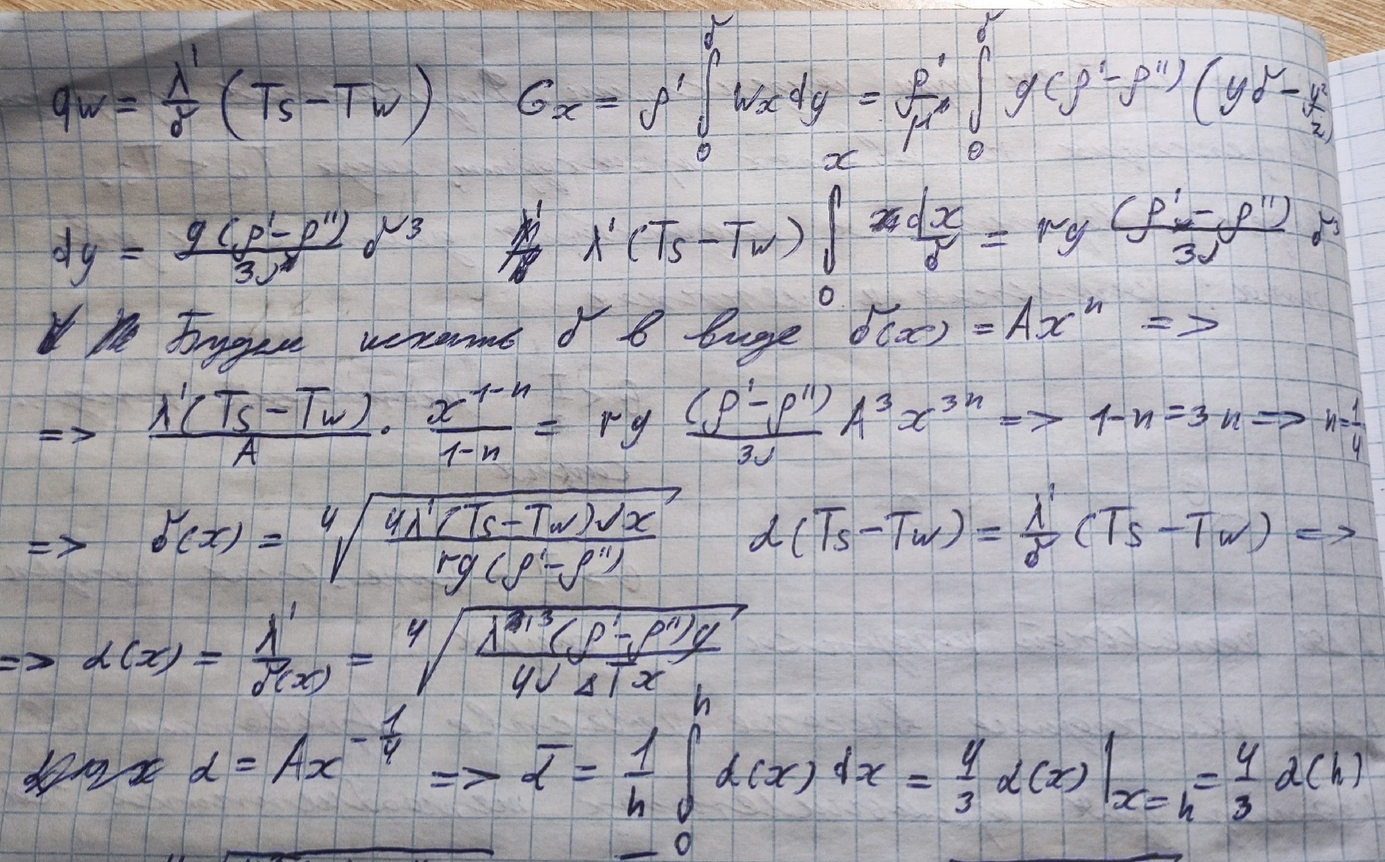 qw = λ'/δ (Ts − Tw)   Gx = ρ' ∫₀^δ wx dy = ρ'/μ' ∫₀^δ g(ρ' − ρ'') (yδ − y²/2)
dy = g(ρ' − ρ'')/3ν δ³   λ'(Ts − Tw) ∫₀^x dx/δ = rg (ρ' − ρ'')/3ν δ³
Будем искать δ в виде δ(x) = Axⁿ =>
=> λ'(Ts − Tw)/A · x^(1−n)/(1−n) = rg (ρ' − ρ'')/3ν A³ x^(3n) => 1−n = 3n => n = 1/4
=> δ(x) = ⁴√(4λ'(Ts − Tw)νx / rg(ρ' − ρ''))   α(Ts − Tw) = λ'/δ (Ts − Tw) =>
=> α(x) = λ'/δ(x) = ⁴√(λ'³(ρ' − ρ'')g / 4ν ΔT x)
α = Ax^(−1/4) => α̅ = 1/h ∫₀^h α(x) dx = 4/3 α(x)|x=h = 4/3 α(h)